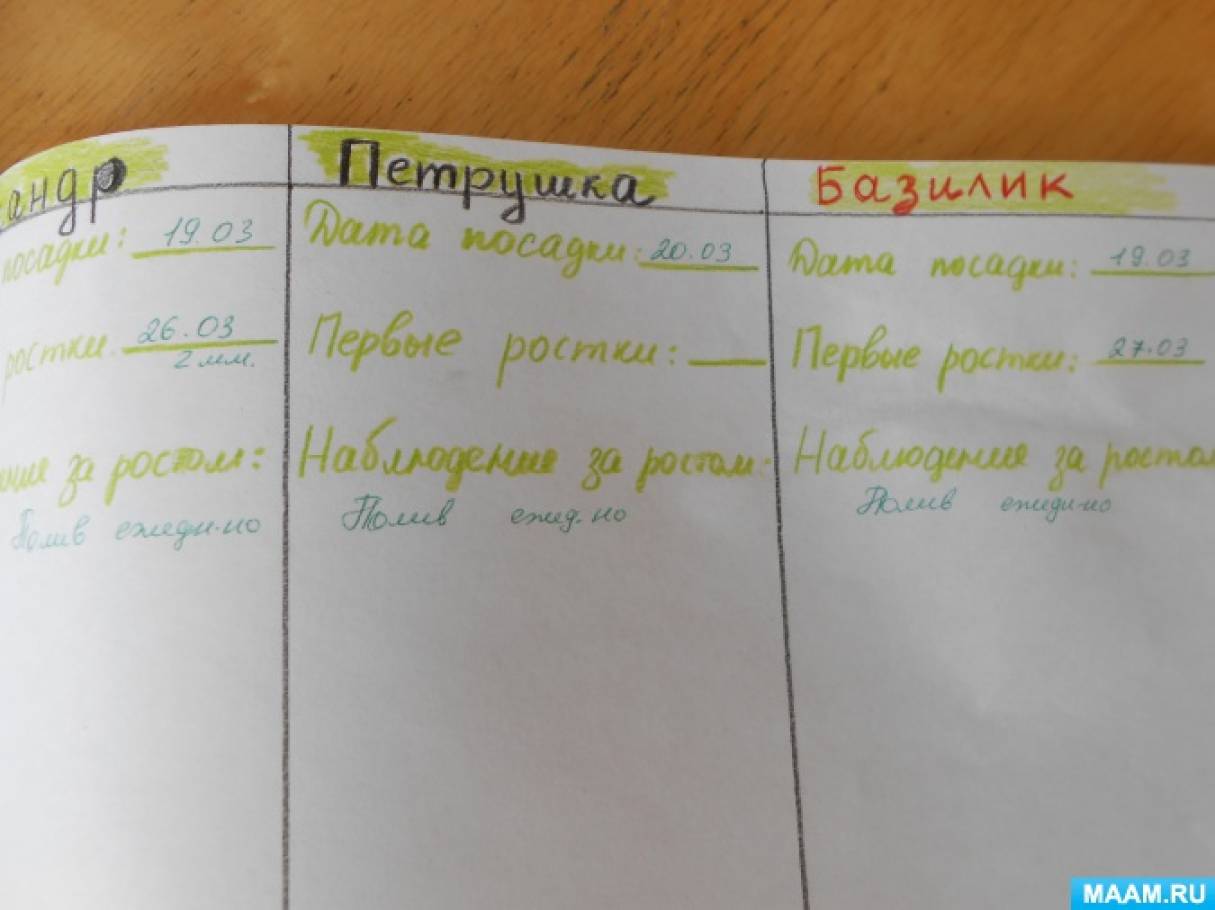 андр
посадки: 19.03
ростки. 26.03
2 мм.
ние за ростом:
Полив ежедн-но
Петрушка
Дата посадки: 20.03
Первые ростки:
Наблюдение за ростом:
Полив ежед.но
Базилик
Дата посадки: 19.03
Первые ростки: 27.03
Наблюдение за ростом
Полив ежедн-но
MAAM.RU